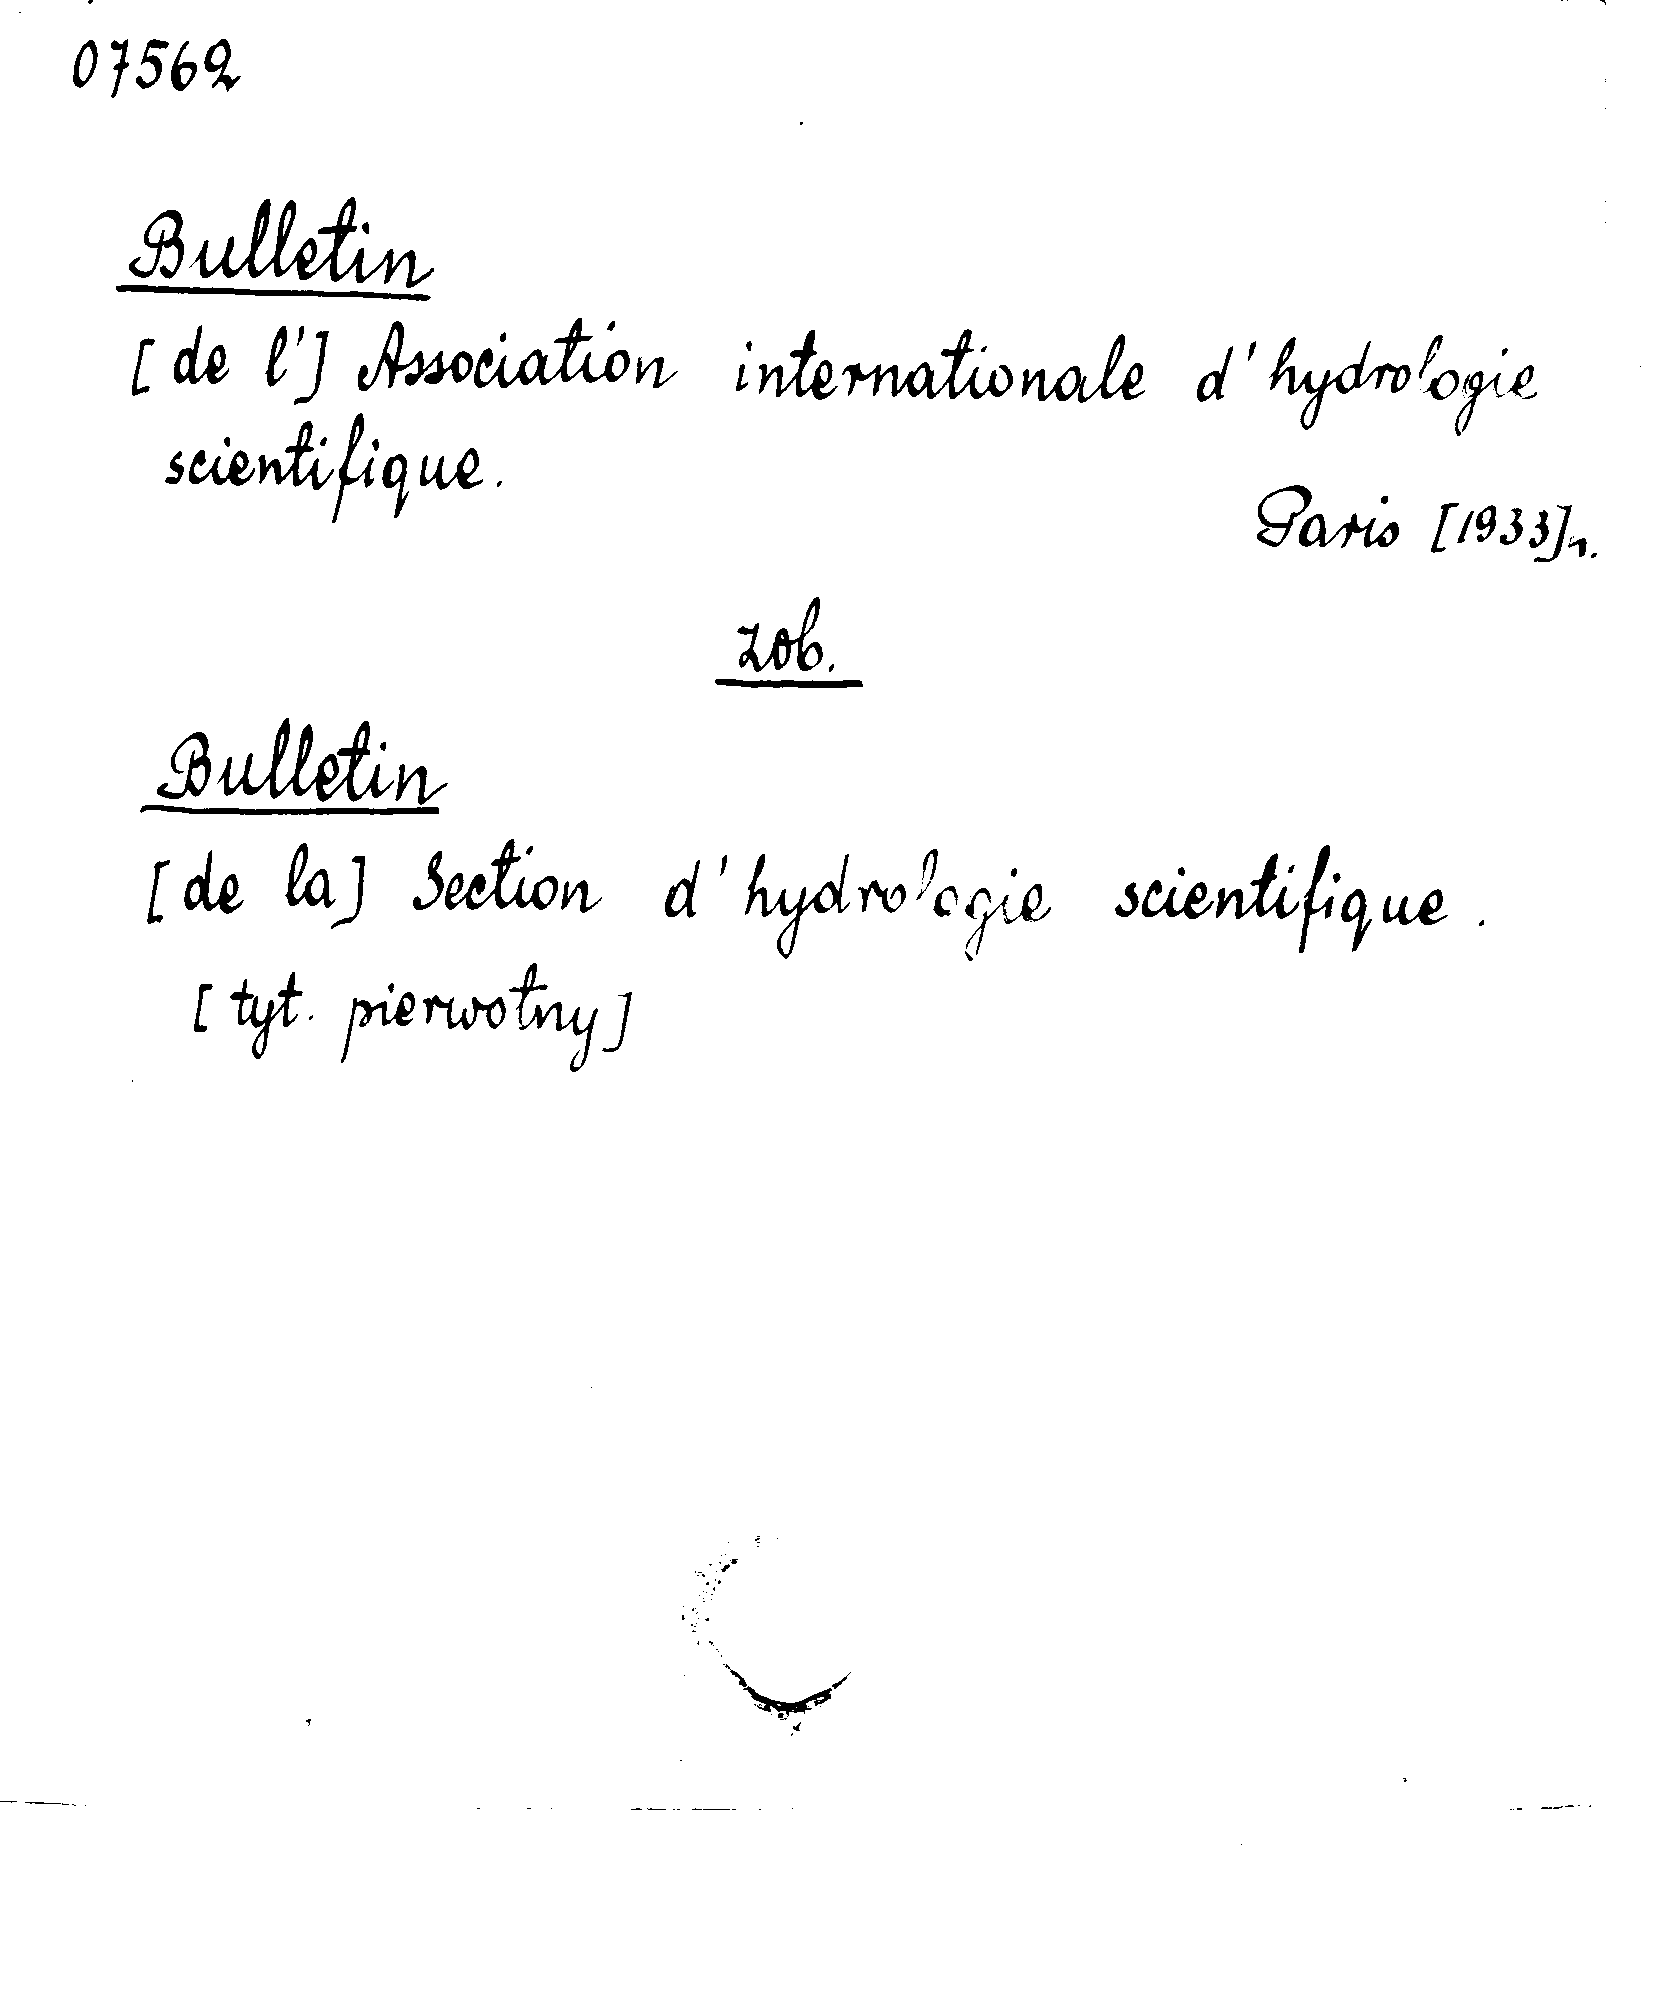 07562
Bulletin
[de l'] Association internationale d'hydrologie
scientifique.
Paris [1933]
zob.
Bulletin
[de la] Section d'hydrologie scientifique.
[tyt. pierwotny]